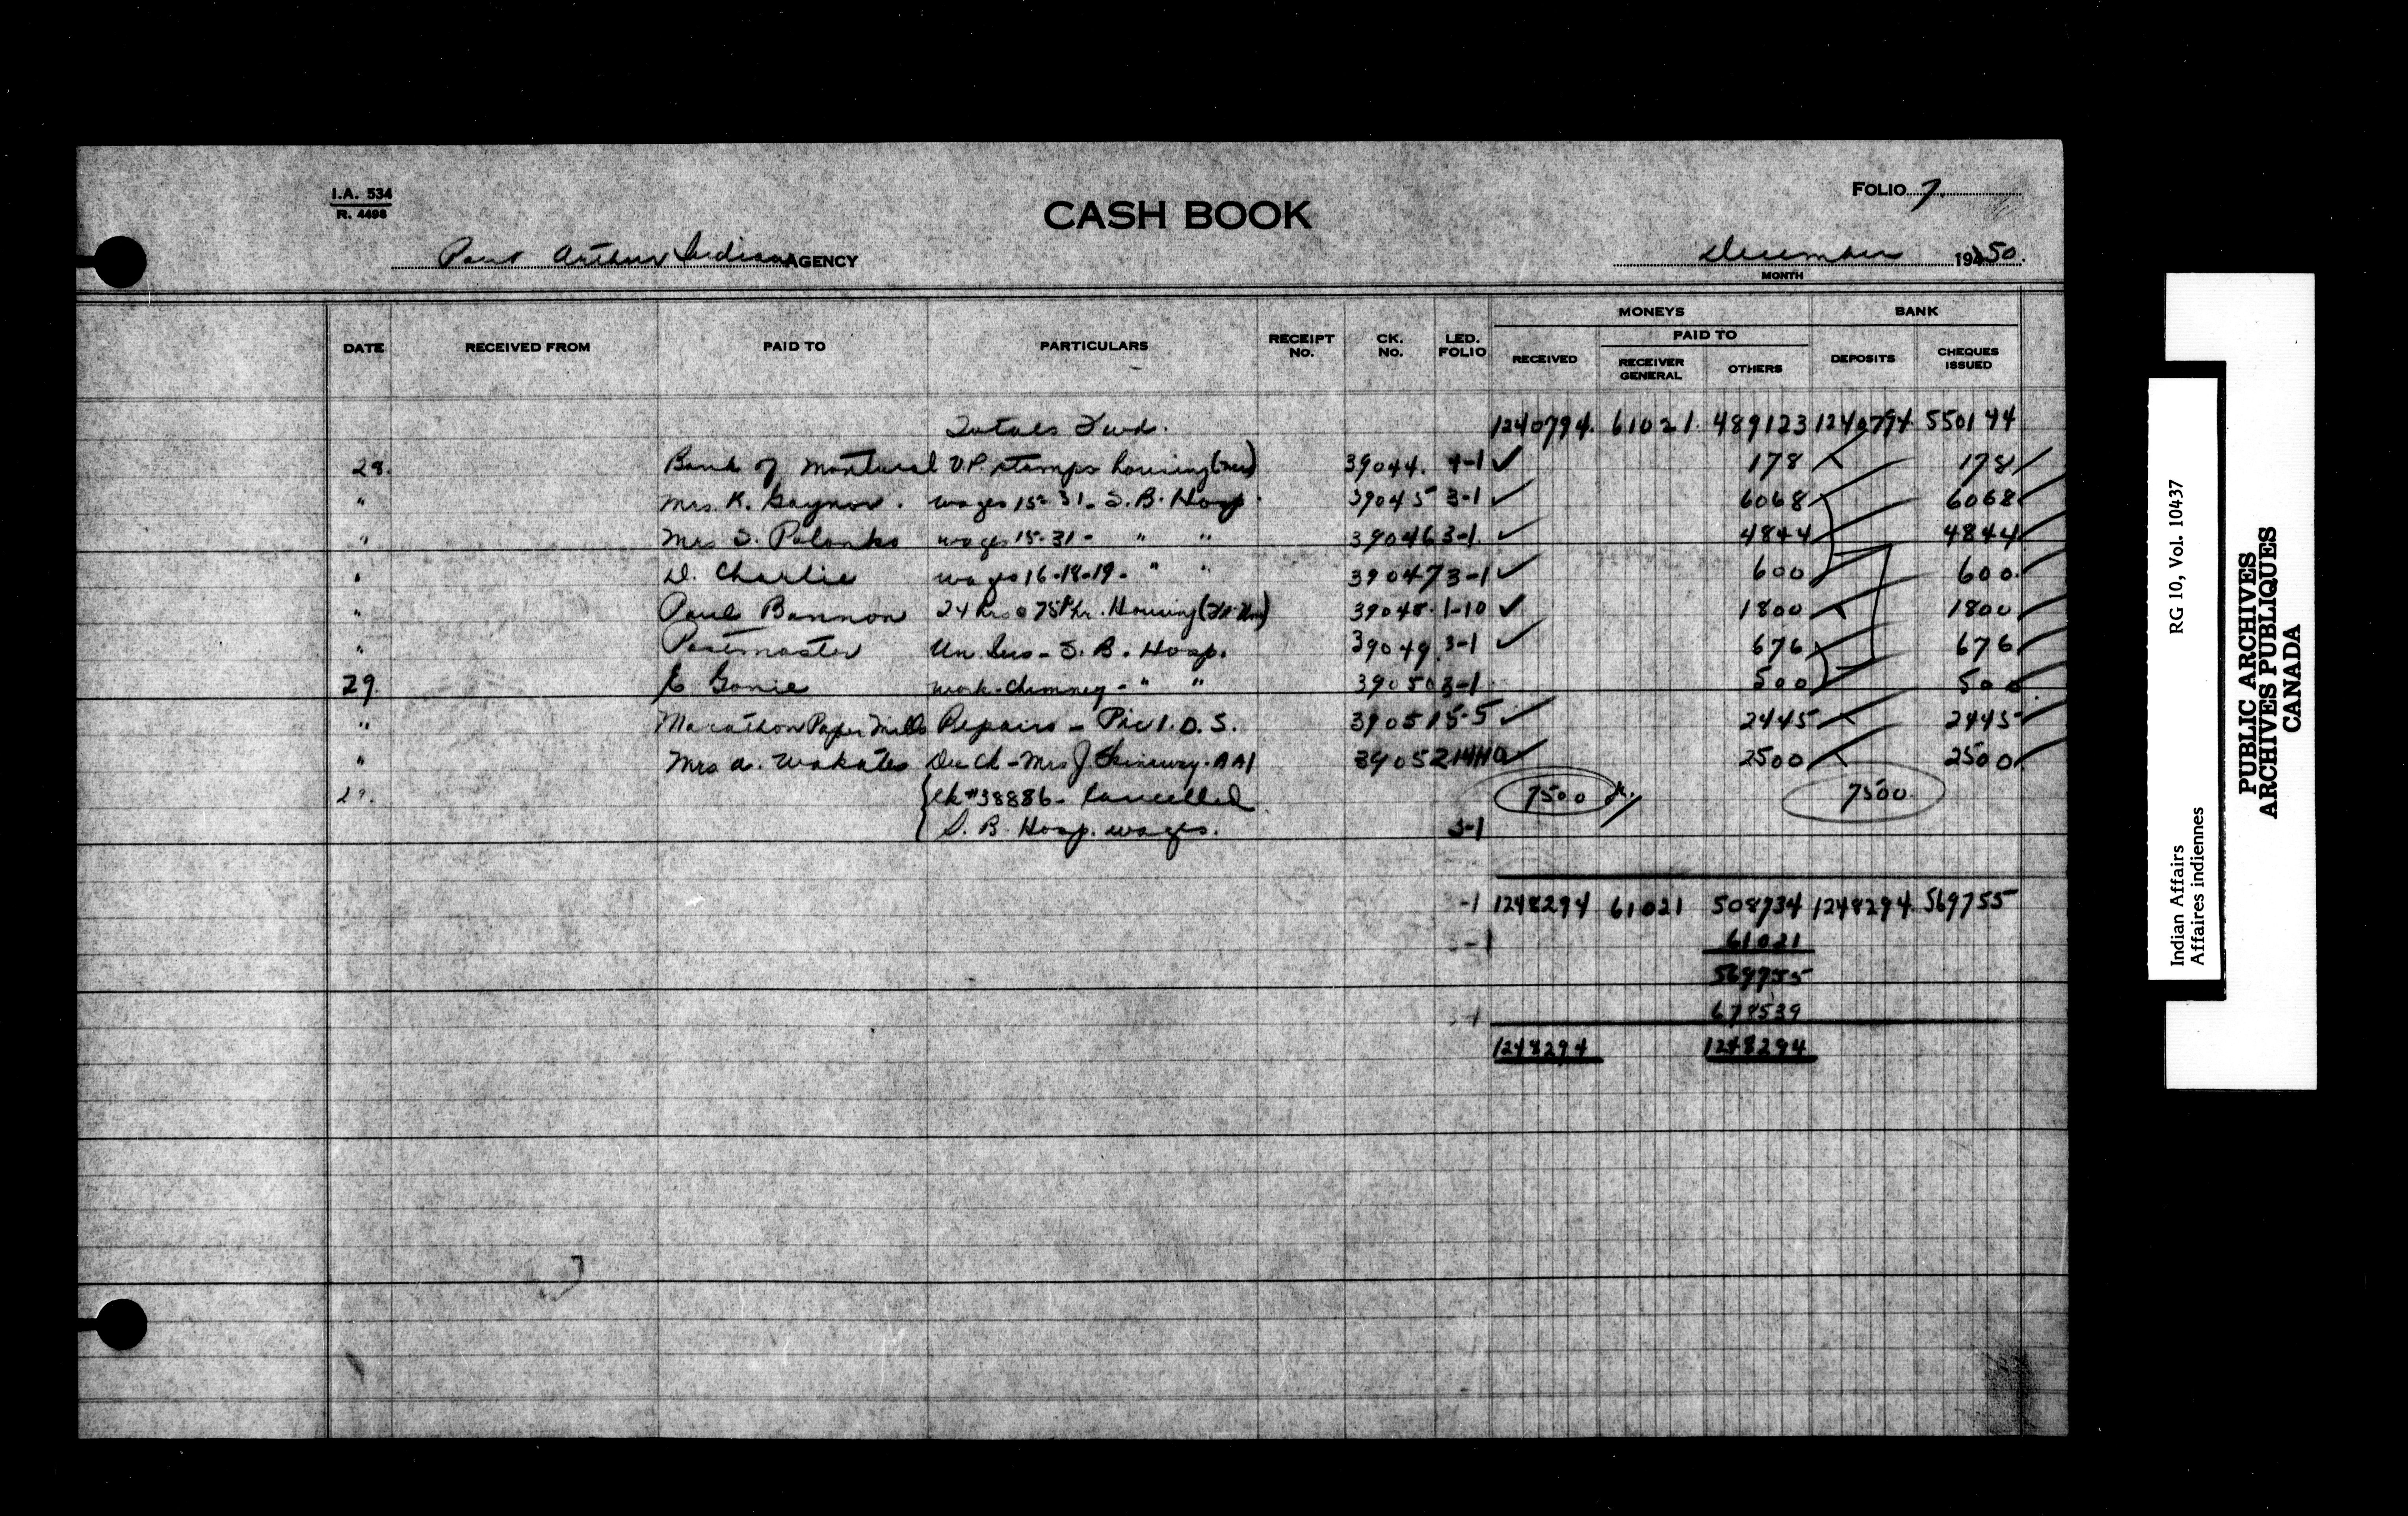 I.A. 534
R. 4498
CASH BOOK
FOLIO 7.
Port Arthur Indian AGENCY
December 1950.
MONTH
DATE RECEIVED FROM PAID TO PARTICULARS RECEIPT NO. CK. NO. LED. FOLIO MONEYS RECEIVED PAID TO RECEIVER GENERAL OTHERS BANK DEPOSITS CHEQUES ISSUED
Totals Fwd. 1240794. 61021. 489123 1240794. 550144
28. Bank of Montreal U.P. stamps housing 39044. 4-1 ✓ 178 178
" Mrs. K. Gaynor. wages 15-31- S.B. Hosp. 39045 3-1 ✓ 6068 6068
" Mrs S. wages 15-31- " " 39046 3-1 ✓ 4844 4844
" D. Charlie wages 16-18-19- " " 39047 3-1 ✓ 600 600.
" Paul Bannon 24 hrs @ 75¢ hr. Housing 39048. 1-10 ✓ 1800 1800
" Postmaster Un. Ins - S.B. Hosp. 39049. 3-1 ✓ 676 676
29. E Gonie work-chimney - " " 39050 3-1 500 500
" Marathon Paper Mills Repairs - Pic I.D.S. 39051 5-5 ✓ 2445 2445
" Mrs a. Wakates Mrs J. AA1 39052 ✓ 2500 2500
29. Ck # 38886 - Cancelled 7500 7500.
S.B. Hosp. wages. 3-1
-1 1248294 61021 508734 1248294. 569755
-1 61021
569755
-1 678539
1248294 1248294
Indian Affairs RG 10, Vol. 10437
Affaires indiennes
PUBLIC ARCHIVES
ARCHIVES PUBLIQUES
CANADA